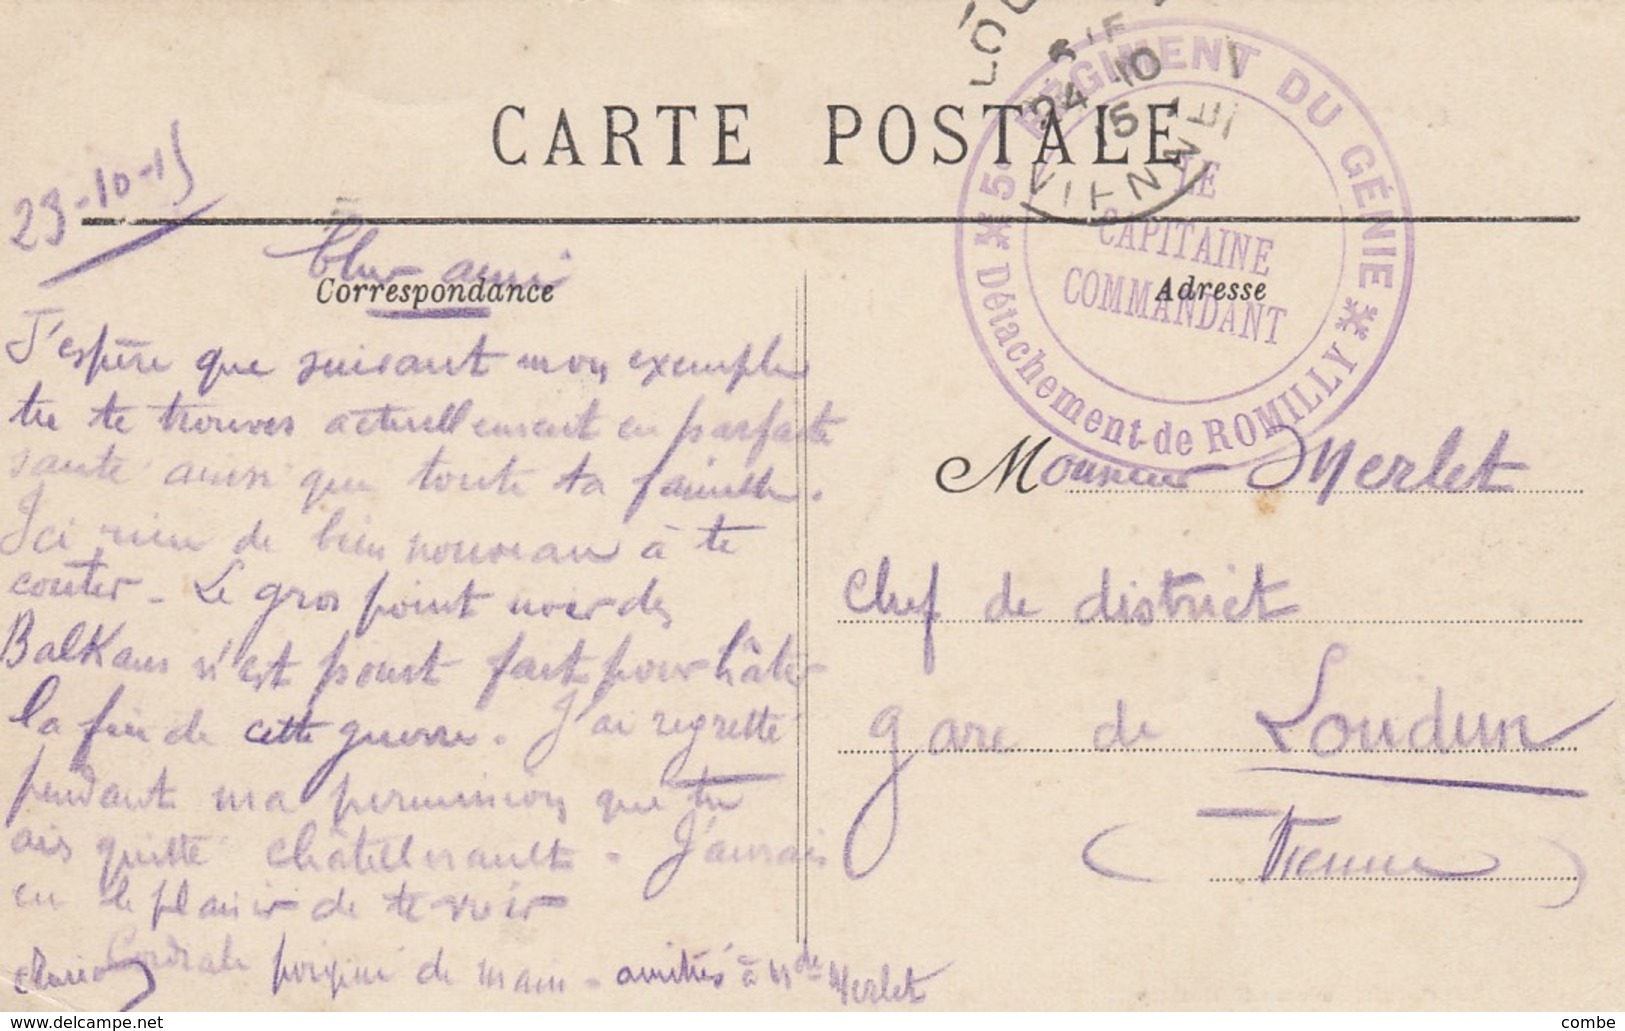 CARTE POSTALE
23-10-15
Correspondance
Cher ami
J'espère que suivant mon exemple
tu te trouves actuellement en parfaite
santé ainsi que toute ta famille.
Ici rien de bien nouveau à te
conter - Le gros point noir des
Balkans n'est point fait pour hâter
la fin de cette guerre. J'ai regretté
pendant ma permission que tu
ais quitté Châtellerault - J'aurais
eu le plaisir de te voir
Cordiale poignée de main - amitiés à Mde Merlet
24 10
15
VIENNE
5e RÉGIMENT DU GÉNIE
LE
CAPITAINE
COMMANDANT
Détachement de ROMILLY
Adresse
Monsieur Merlet
Chef de district
gare de Loudun
(Vienne)
delcampe.net
combe